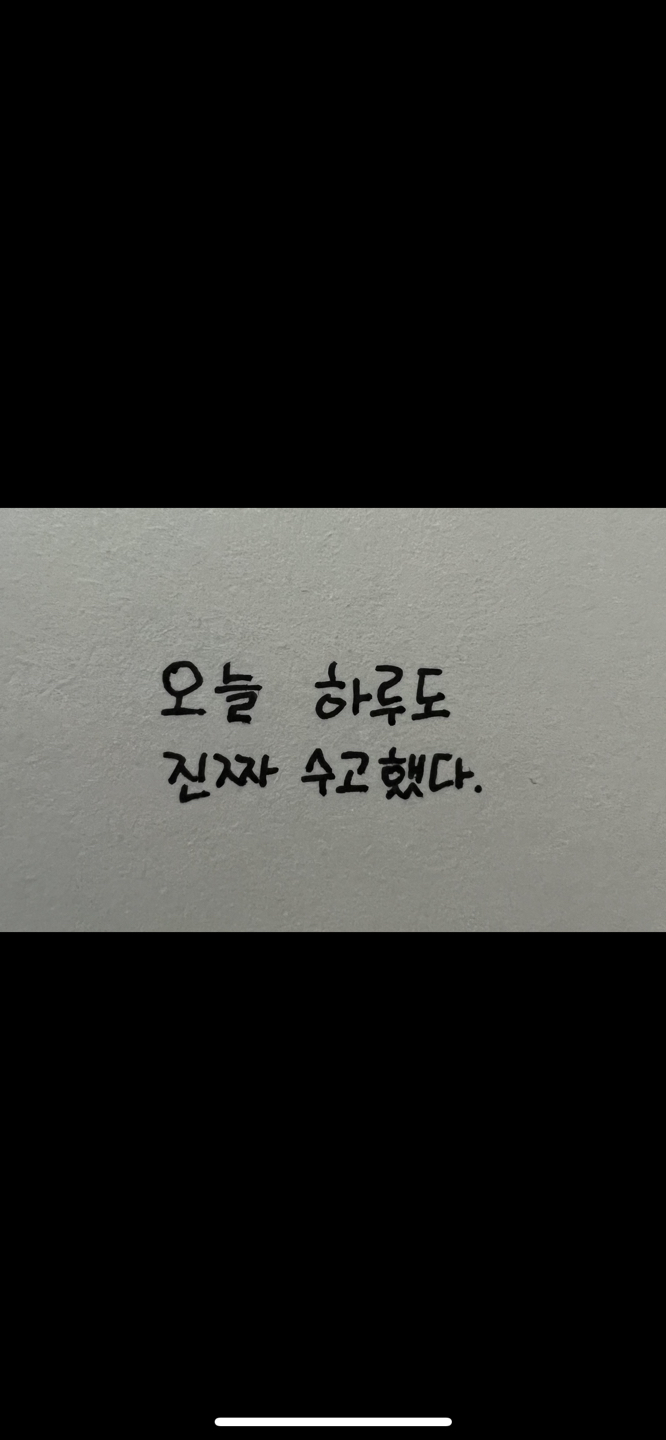 오늘 하루도
진짜 수고했다.